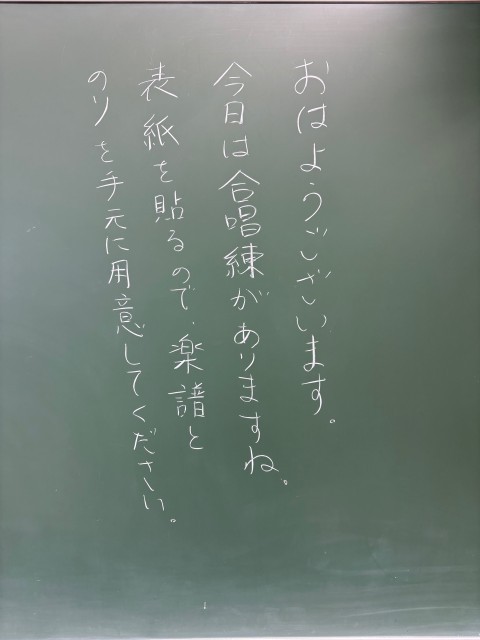 おはようございます。
今日は合唱練がありますね。
表紙を貼るので、楽譜と
のりを手元に用意してください。